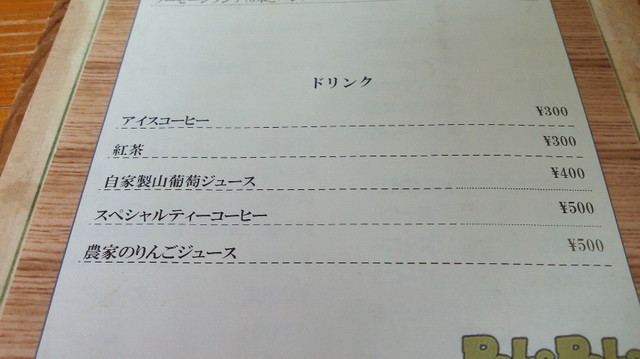 ドリンク
アイスコーヒー ¥300
紅茶 ¥300
自家製山葡萄ジュース ¥400
スペシャルティーコーヒー ¥500
農家のりんごジュース ¥500